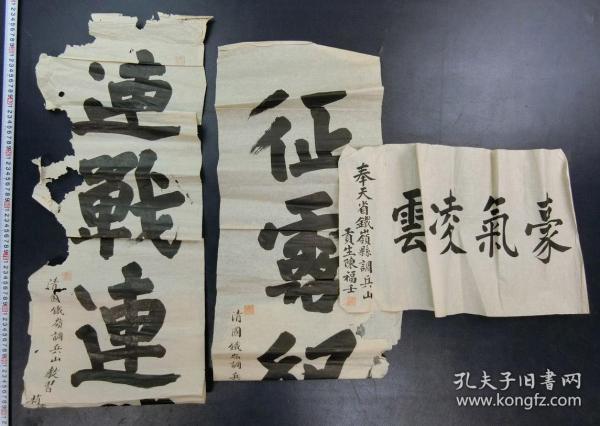 連戰連
清國鐵嶺調兵山教習
征露紀
清國鐵嶺調兵
豪氣凌雲
奉天省鐵嶺縣調兵山
貢生陳福士
孔夫子旧书网
www.kongfz.com